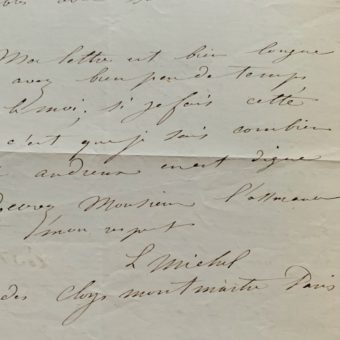 Ma lettre est bien longue
avez bien peu de temps
moi. si je fais cette
c'est que je sais combien
andrieux en est digne
Recevez Monsieur l'assurance
mon respect
L Michel
des Cloys montmartre Paris